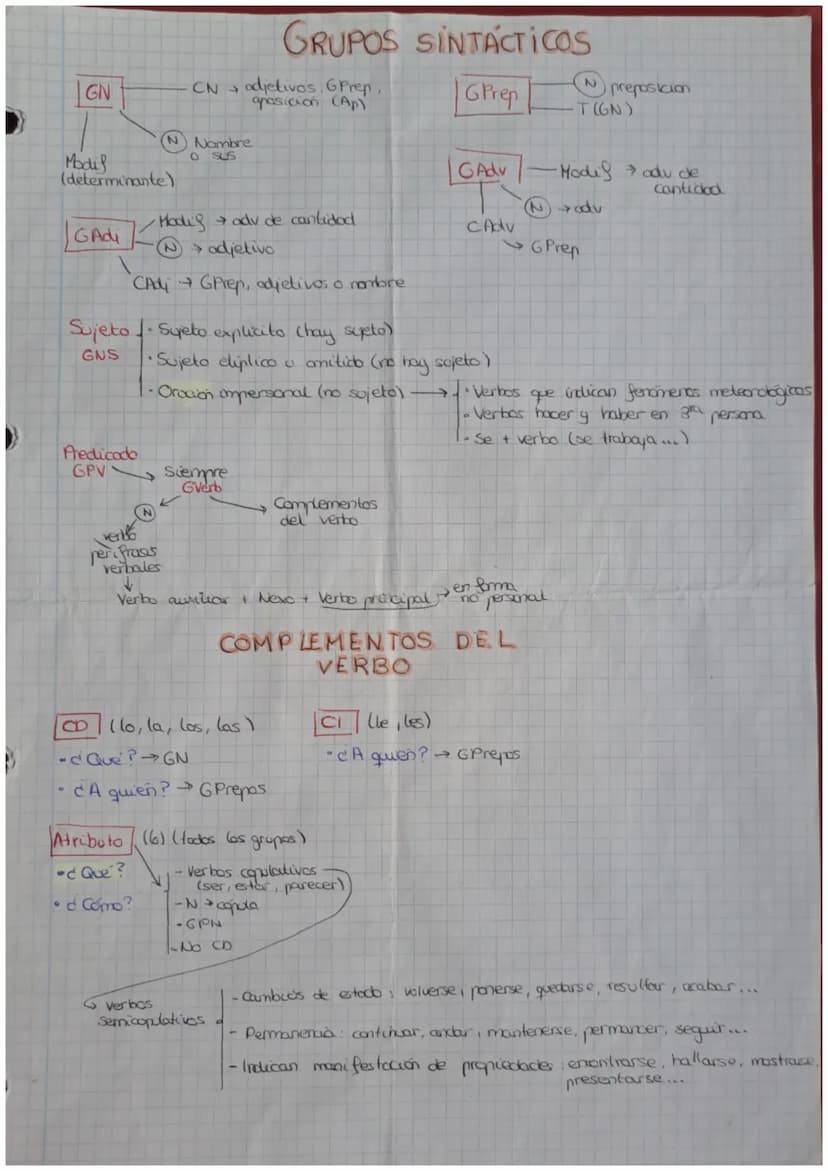 GRUPOS SINTÁCTICOS
GN
CN → adjetivos, GPrep,
aposición (Ap)
N Nombre
o sus
Modif
(determinante)
GPrep
N preposición
T (GN)
GAdv
Modif → adv de
cantidad
N → adv
CAdv
→ GPrep
GAdj
Modif → adv de cantidad
N → adjetivo
CAdj → GPrep, adjetivos o nombre
Sujeto
GNS
· Sujeto explícito (hay sujeto)
· Sujeto elíptico u omitido (no hay sujeto)
· Oración impersonal (no sujeto) →
· Verbos que indican fenómenos meteorológicos
· Verbos hacer y haber en 3ra persona
· Se + verbo (se trabaja...)
Predicado
GPV → Siempre
GVerb
N
Complementos
del verbo
verbo
perífrasis
verbales
Verbo auxiliar + Nexo + Verbo principal → en forma
no personal
COMPLEMENTOS DEL
VERBO
CD (lo, la, los, las)
· ¿Qué? → GN
· ¿A quién? → GPrepos
CI (le, les)
· ¿A quién? → GPrepos
Atributo (6) (todos los grupos)
· ¿Qué?
· ¿Cómo?
- Verbos copulativos
(ser, estar, parecer)
- N → cópula
- GPN
- No CD
verbos
semicopulativos
- Cambios de estado: volverse, ponerse, quedarse, resultar, acabar...
- Permanencia: continuar, andar, mantenerse, permanecer, seguir...
- Indican manifestación de propiedades: encontrarse, hallarse, mostrarse,
presentarse...